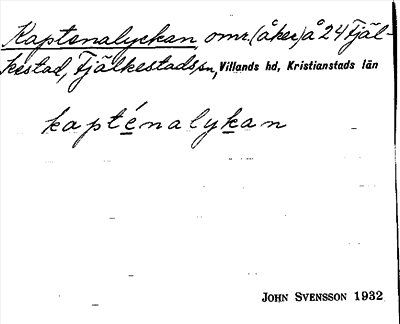 Kaptenalyckan, omr. (åker) å 24 Fjäl-
kestad, Fjälkestads sn, Villands hd, Kristianstads län
kapténalykan
JOHN SVENSSON 1932